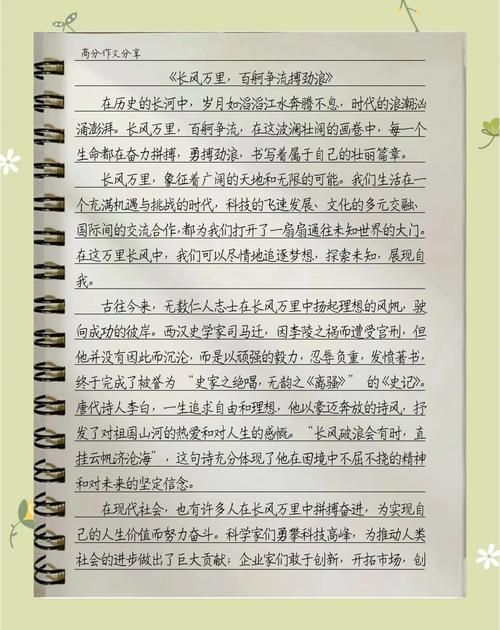 高分作文分享
《长风万里，百舸争流搏劲浪》
在历史的长河中，岁月如滔滔江水奔腾不息，时代的浪潮汹
涌澎湃。长风万里，百舸争流，在这波澜壮阔的画卷中，每一个
生命都在奋力拼搏，勇搏劲浪，书写着属于自己的壮丽篇章。
长风万里，象征着广阔的天地和无限的可能。我们生活在一
个充满机遇与挑战的时代，科技的飞速发展、文化的多元交融、
国际间的交流合作，都为我们打开了一扇扇通往未知世界的大门。
在这万里长风中，我们可以尽情地追逐梦想，探索未知，展现自
我。
古往今来，无数仁人志士在长风万里中扬起理想的风帆，驶
向成功的彼岸。西汉史学家司马迁，因李陵之祸而遭受宫刑，但
他并没有因此而沉沦，而是以顽强的毅力，忍辱负重，发愤著书，
终于完成了被誉为“史家之绝唱，无韵之《离骚》”的《史记》。
唐代诗人李白，一生追求自由和理想，他以豪迈奔放的诗风，抒
发了对祖国山河的热爱和对人生的感慨。“长风破浪会有时，直
挂云帆济沧海”，这句诗充分体现了他在困境中不屈不挠的精神
和对未来的坚定信念。
在现代社会，也有许多人在长风万里中拼搏奋进，为实现自
己的人生价值而努力奋斗。科学家们勇攀科技高峰，为推动人类
社会的进步做出了巨大贡献；企业家们敢于创新，开拓市场，创